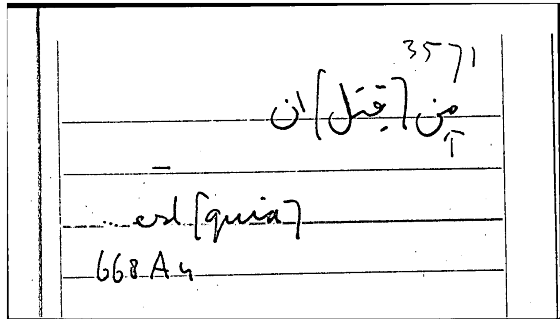 3571
من [قبل] ان
T
... est [quia]
668 A 4